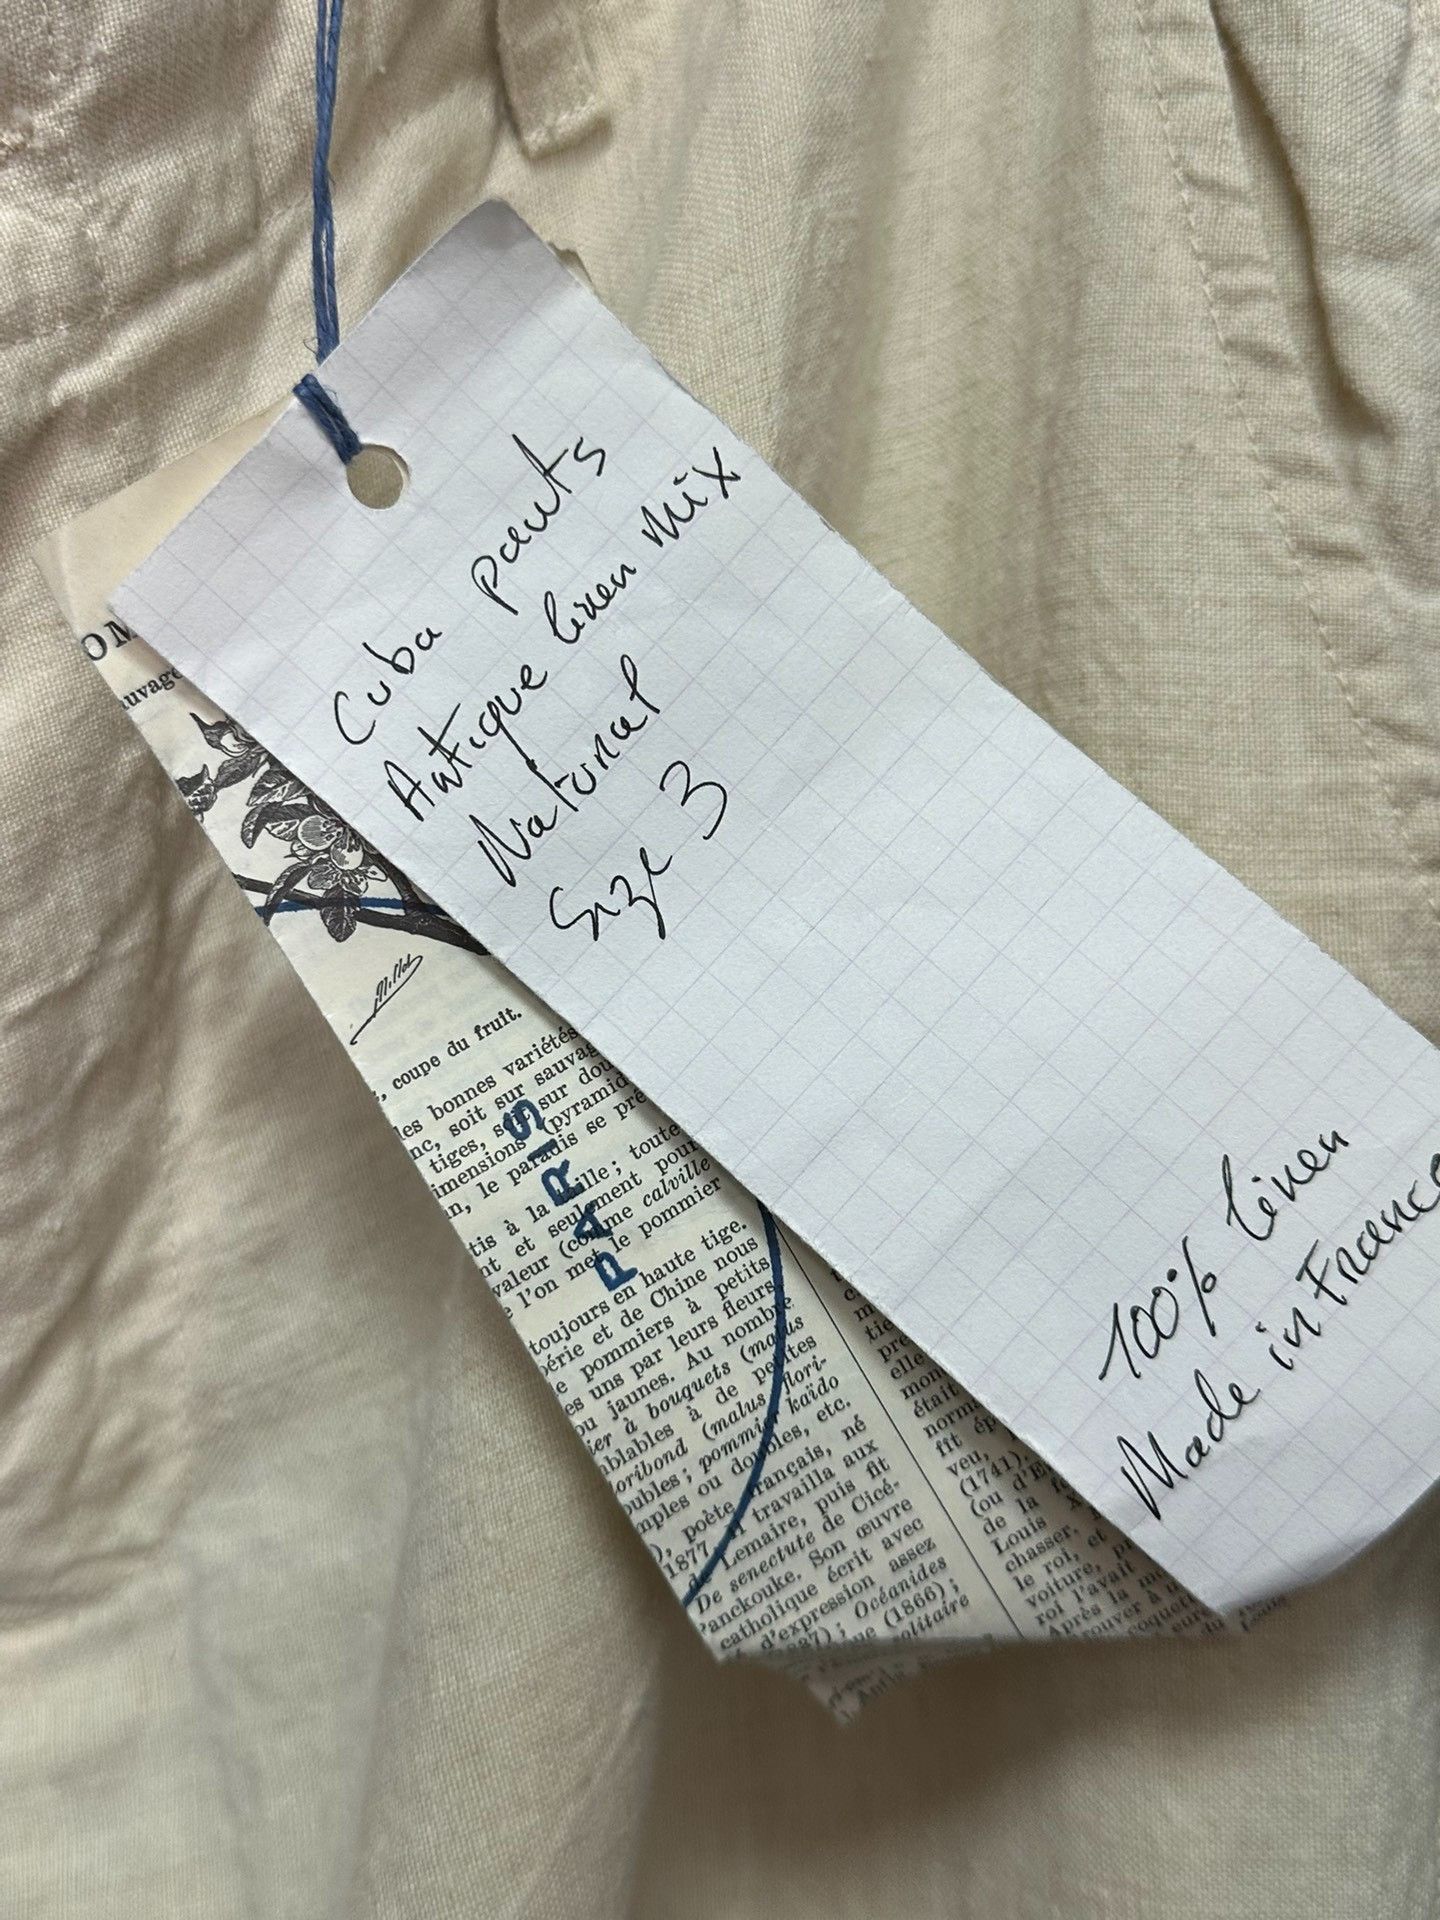 Cuba pants
Antique linen mix
Natural
Size 3
100% linen
Made in France
OM
auvage
Millot
, coupe du fruit.
les bonnes variétés
nc, soit sur sauvag
tiges, soit sur dou
imensions (pyramid
n, le paradis se prê
tis à la taille; toute
nt et seulement pour
valeur (comme calville
e l'on met le pommier
toujours en haute tige.
périe et de Chine nous
e pommiers à petits
es uns par leurs fleurs
ou jaunes. Au nombre
ier à bouquets (malus
mblables à de petites
loribond (malus flori-
oubles; pommier kaïdo
mples ou doubles, etc.
), poète français, né
1877. Il travailla aux
de Lemaire, puis fit
De senectute de Cicé-
Panckouke. Son œuvre
catholique écrit avec
d'expression assez
; Océanides
(1866);
solitaire
PARIS
tie
pre
elle
mon
était
norm
fit ép
veu,
(1741).
(ou d'E
de la fe
Louis X
chasser.
le roi, et
voiture, p
roi l'avait
Après la mo
rouver à u
coquett